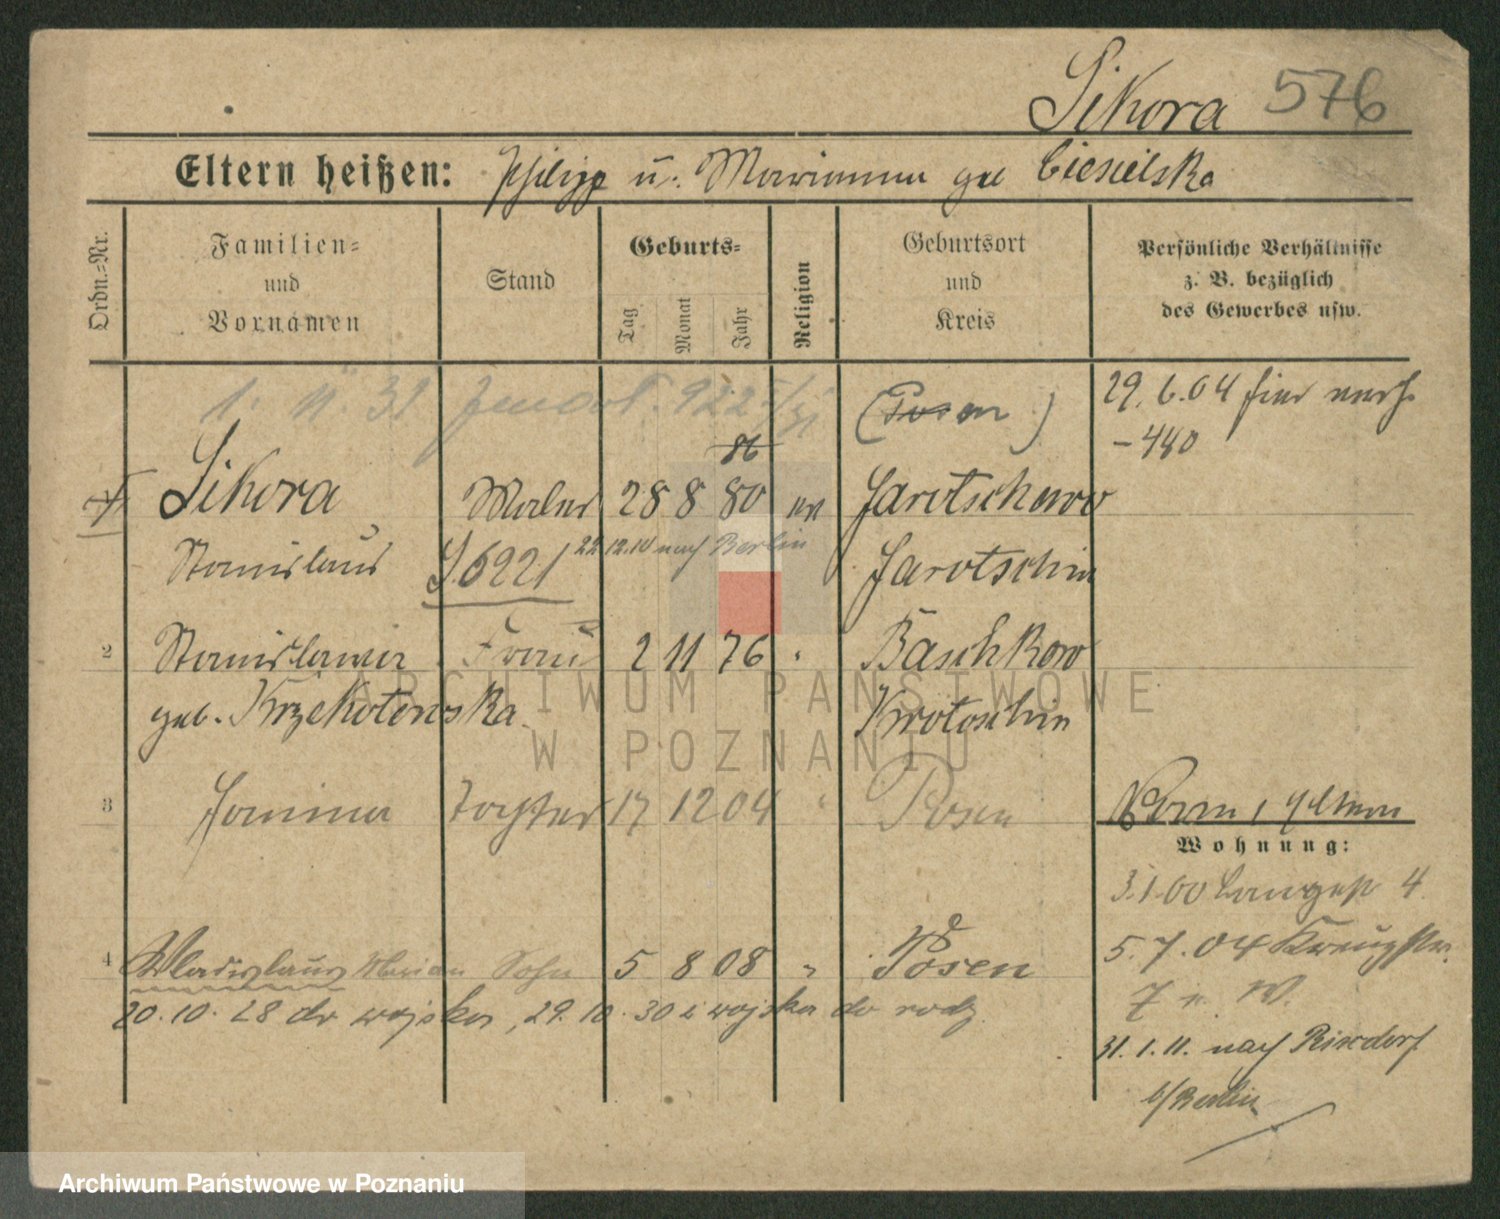 Sikora 576
Eltern heißen: Philipp u. Marianna geb Ciesielska
Ordn.=Nr.
Familien=
und
Vornamen
Stand
Geburts=
Tag
Monat
Jahr
Religion
Geburtsort
und
Kreis
Persönliche Verhältnisse
z. B. bezüglich
des Gewerbes usw.
1. 11. 31
(Posen)
29.6.04 hier
– 440
86
1 Sikora Maler 28 8 80 Jarotschewo
Stanislaus J.6221 22.12.10 nach Berlin Jarotschin
2 Stanislawa Frau 2 11 76 " Baschkow
geb. Krzekotowska Krotoschin
3 Janina Tochter 17 12 04 " Posen
Wohnung:
3.1.00 Langestr 4
4 Wladislaus Marian Sohn 5 8 08 " Posen
5.7.04 Kreuzstr.
7 n. W.
20.10.28 do wojska, 29.10.30 z wojska do rodz.
31.1.11. nach Rixdorf
b/Berlin
ARCHIWUM PAŃSTWOWE
W POZNANIU
Archiwum Państwowe w Poznaniu